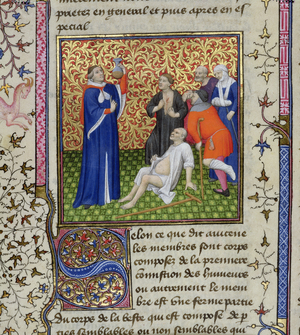 en general et puis apres en es
pecial
Selon ce que dit auicene
les membres sont corps
composez de la premiere
comistion des humeurs
ou autrement le mem
bre est une ferme partie
du corps de la beste qui est compose de p
ties semblables ou non semblables qui